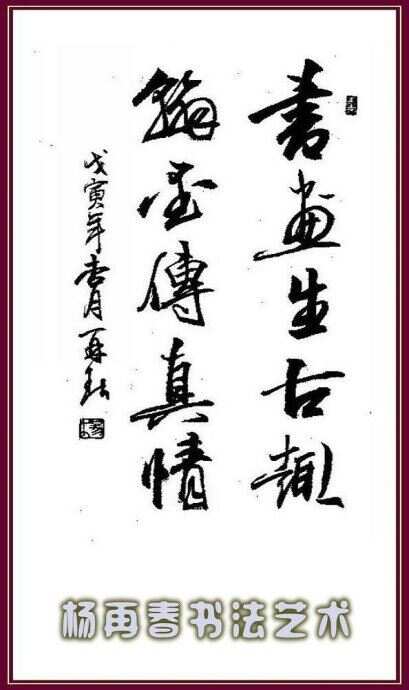 書畫生古趣
翰墨傳真情
戊寅年杏月再春
杨再春书法艺术